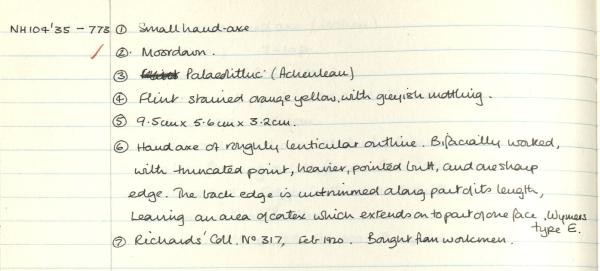 NH104'35 - 773 ① Small hand-axe
② Moordown.
③ Palaeolithic (Acheulean)
④ Flint stained orange yellow, with greyish mottling.
⑤ 9.5cm x 5.6cm x 3.2cm.
⑥ Hand axe of roughly lenticular outline. Bifacially worked,
with truncated point, heavier, pointed butt, and one sharp
edge. The back edge is untrimmed along part of its length,
leaving an area of cortex which extends on to part of one face. Wymers
type E.
⑦ Richards' Coll. Nº 317, Feb 1920. Bought from workmen.